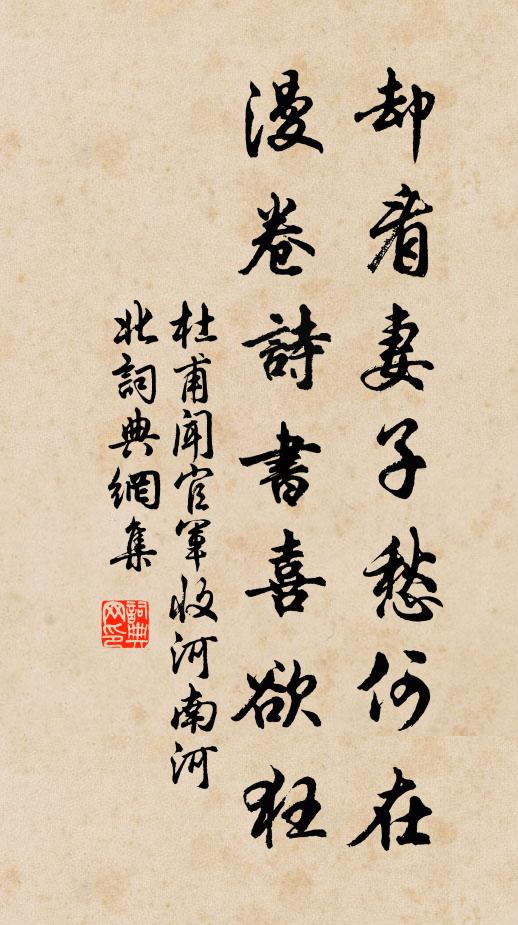 却看妻子愁何在
漫卷詩書喜欲狂
杜甫聞官軍收河南河
北詞典網集
詞典网印